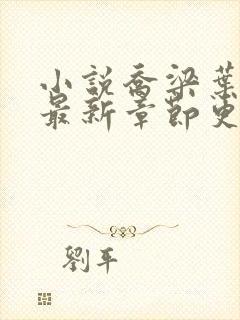 小說喬梁葉
最新章節更
劉平